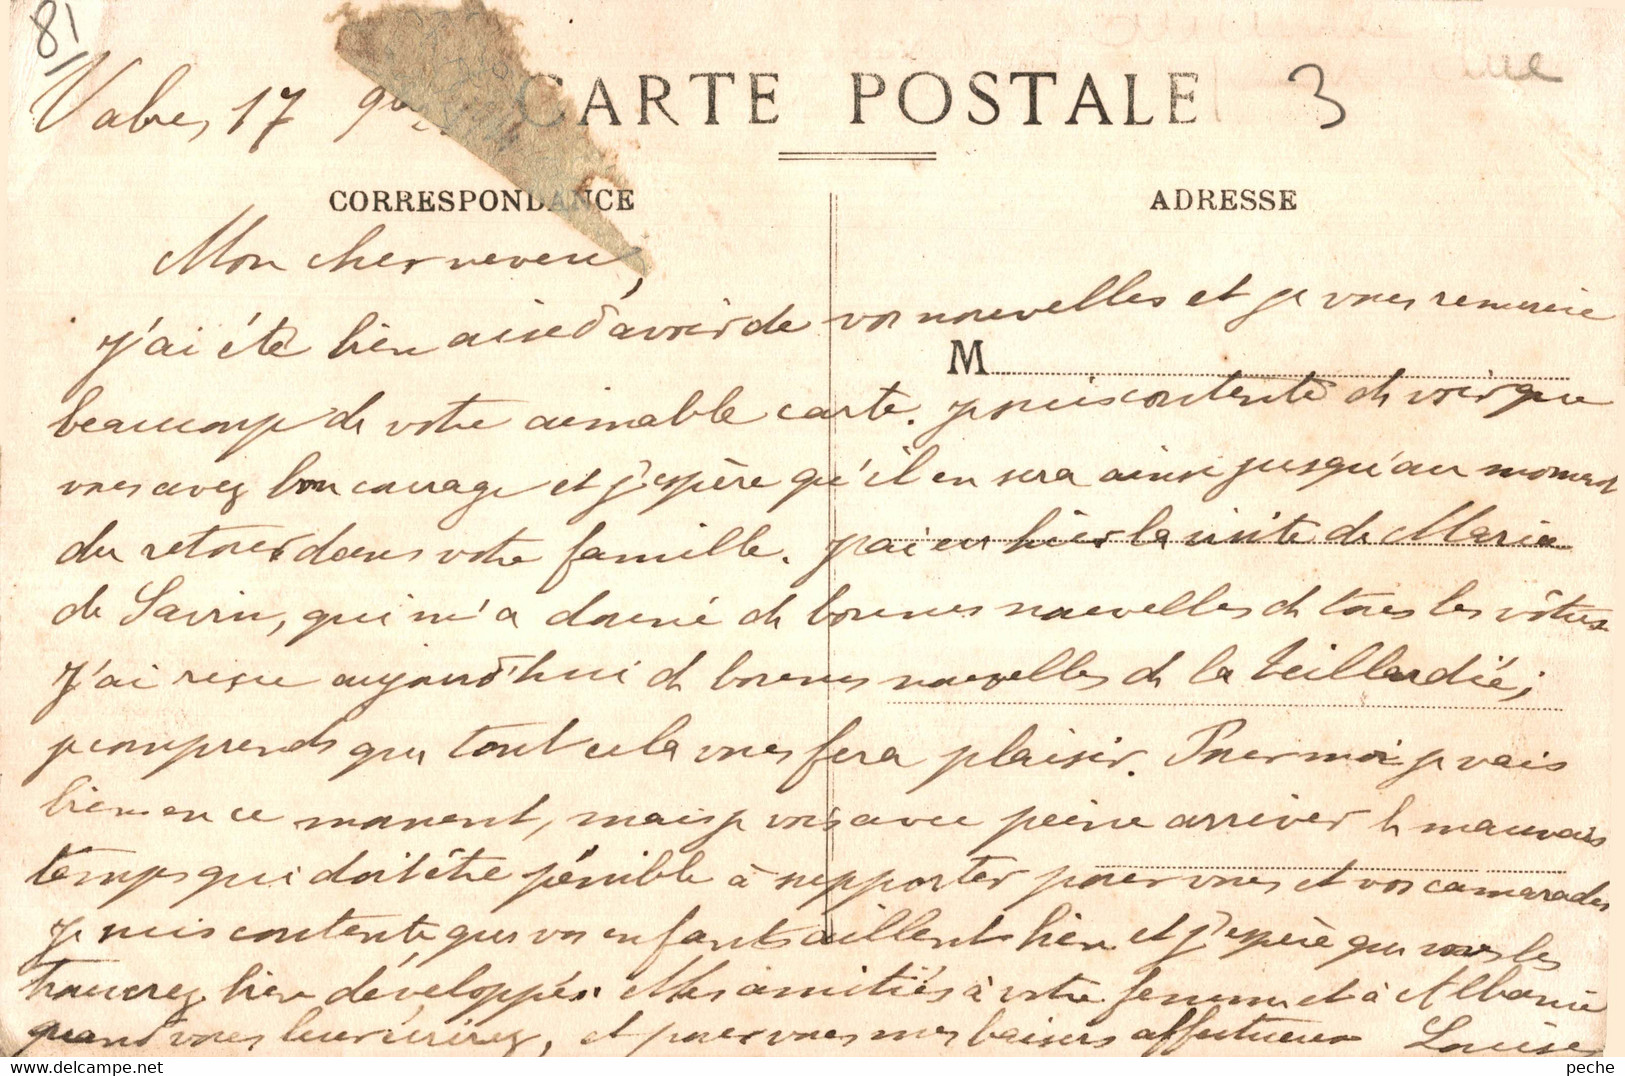 81
Vabre, 17
CARTE POSTALE
3
CORRESPONDANCE
ADRESSE
Mon cher neveu,
j'ai été bien aise d'avoir de vos nouvelles et je vous remercie
M
beaucoup de votre aimable carte. je suis contente de voir que
vous avez bon courage et j'espère qu'il en sera ainsi jusqu'au moment
du retour dans votre famille. j'ai eu hier la visite de Maria
de Savin, qui m'a donné de bonnes nouvelles de tous les vôtres
J'ai reçu aujourd'hui de bonnes nouvelles de la Teillardié;
je comprends que tout cela vous fera plaisir. Pour moi je vais
bien en ce moment, mais je vois avec peine arriver le mauvais
temps qui doit être pénible à supporter pour vous et vos camarades
je suis contente que vos enfants aillent bien et j'espère que vous les
trouverez bien développés. Mes amitiés à votre femme et à Albanie
quand vous leur écrirez, et pour vous mes baisers affectueux Louise
peche